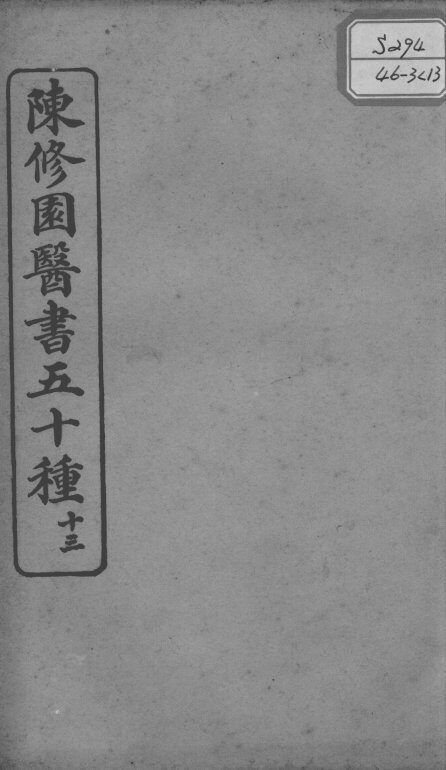 陳修園醫書五十種
十三
S294
46-3<13